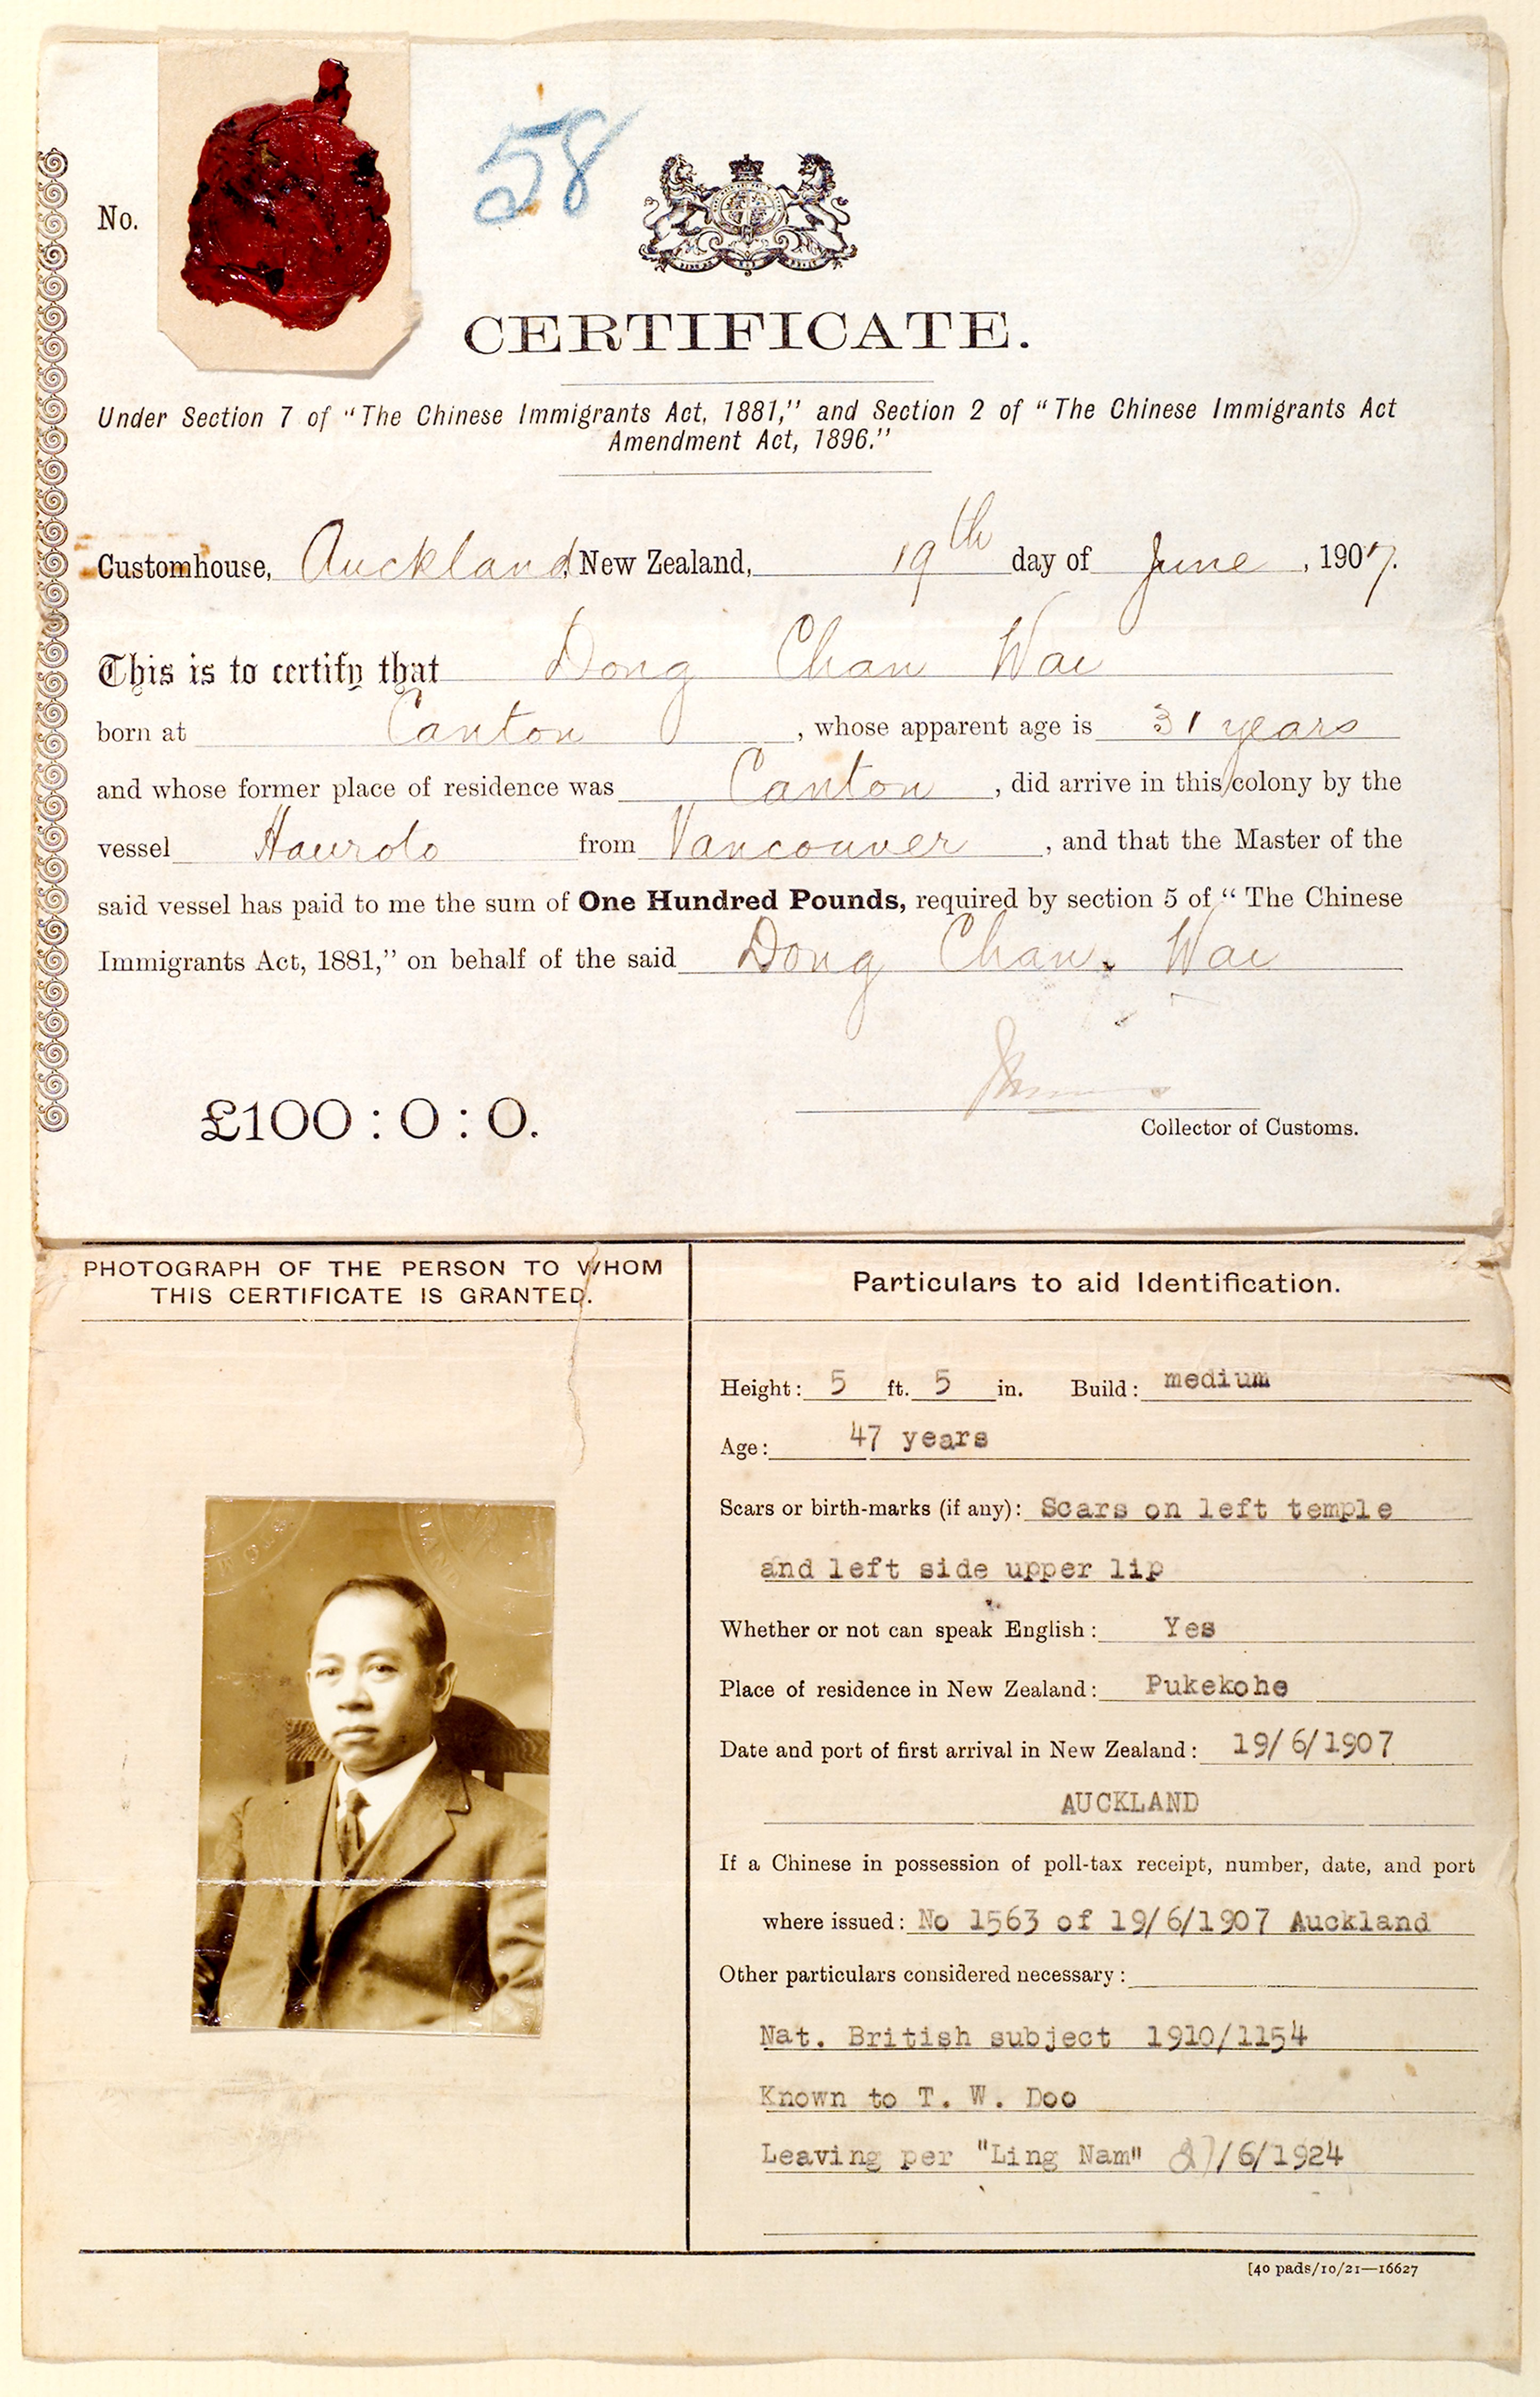 58
No.
CERTIFICATE.
Under Section 7 of "The Chinese Immigrants Act, 1881," and Section 2 of "The Chinese Immigrants Act
Amendment Act, 1896."
Customhouse, Auckland, New Zealand, 19th day of June, 1907.
This is to certify that Dong Chan Wai
born at Canton, whose apparent age is 31 years
and whose former place of residence was Canton, did arrive in this colony by the
vessel Hauroto from Vancouver, and that the Master of the
said vessel has paid to me the sum of One Hundred Pounds, required by section 5 of "The Chinese
Immigrants Act, 1881," on behalf of the said Dong Chan Wai
£100 : 0 : 0.
Collector of Customs.
PHOTOGRAPH OF THE PERSON TO WHOM
THIS CERTIFICATE IS GRANTED.
Particulars to aid Identification.
Height: 5 ft. 5 in. Build: medium
Age: 47 years
Scars or birth-marks (if any): Scars on left temple
and left side upper lip
Whether or not can speak English: Yes
Place of residence in New Zealand: Pukekohe
Date and port of first arrival in New Zealand: 19/6/1907
AUCKLAND
If a Chinese in possession of poll-tax receipt, number, date, and port
where issued: No 1563 of 19/6/1907 Auckland
Other particulars considered necessary:
Nat. British subject 1910/1154
Known to T. W. Doo
Leaving per "Ling Nam" /6/1924
[40 pads/10/21—16627